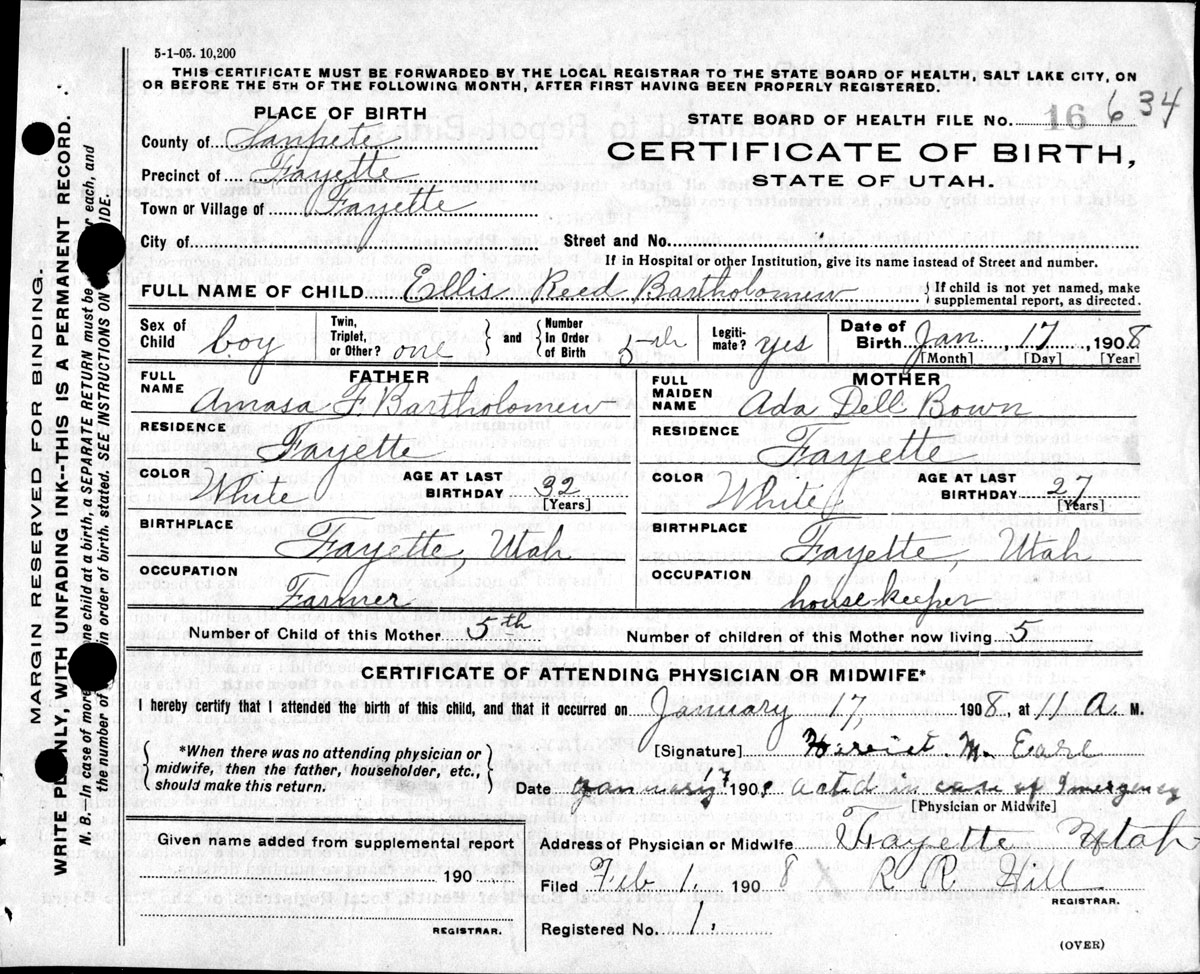 5-1-05. 10,200
THIS CERTIFICATE MUST BE FORWARDED BY THE LOCAL REGISTRAR TO THE STATE BOARD OF HEALTH, SALT LAKE CITY, ON
OR BEFORE THE 5TH OF THE FOLLOWING MONTH, AFTER FIRST HAVING BEEN PROPERLY REGISTERED.
PLACE OF BIRTH
County of Sanpete
Precinct of Fayette
Town or Village of Fayette
STATE BOARD OF HEALTH FILE NO. 16 634
CERTIFICATE OF BIRTH,
STATE OF UTAH.
City of Street and No.
If in Hospital or other Institution, give its name instead of Street and number.
FULL NAME OF CHILD Ellis Reed Bartholomew { If child is not yet named, make
supplemental report, as directed.
Sex of Child boy Twin, Triplet, or Other? one } and { Number In Order of Birth 5th Legiti-mate? yes Date of Birth Jan, 17, 1908
[Month] [Day] [Year]
FATHER
FULL NAME Amasa F. Bartholomew
RESIDENCE Fayette
COLOR White AGE AT LAST BIRTHDAY 32 [Years]
BIRTHPLACE Fayette, Utah
OCCUPATION Farmer
MOTHER
FULL MAIDEN NAME Ada Dell Bown
RESIDENCE Fayette
COLOR White AGE AT LAST BIRTHDAY 27 [Years]
BIRTHPLACE Fayette, Utah
OCCUPATION housekeeper
Number of Child of this Mother 5th Number of children of this Mother now living 5
CERTIFICATE OF ATTENDING PHYSICIAN OR MIDWIFE*
I hereby certify that I attended the birth of this child, and that it occurred on January 17, 1908 at 11 A M.
{ *When there was no attending physician or
midwife, then the father, householder, etc.,
should make this return. }
[Signature] Harriet M. Earl
Date January 17 1908 acted in case of Imergency
[Physician or Midwife]
Given name added from supplemental report
190
REGISTRAR.
Address of Physician or Midwife Fayette Utah
Filed Feb 1, 1908 X R R Hill
REGISTRAR.
Registered No. 1,
(OVER)
MARGIN RESERVED FOR BINDING.
WRITE PLAINLY, WITH UNFADING INK--THIS IS A PERMANENT RECORD.
N. B. In case of more one child at a birth, a SEPARATE RETURN must be each, and
the number of in order of birth, stated. SEE INSTRUCTIONS ON